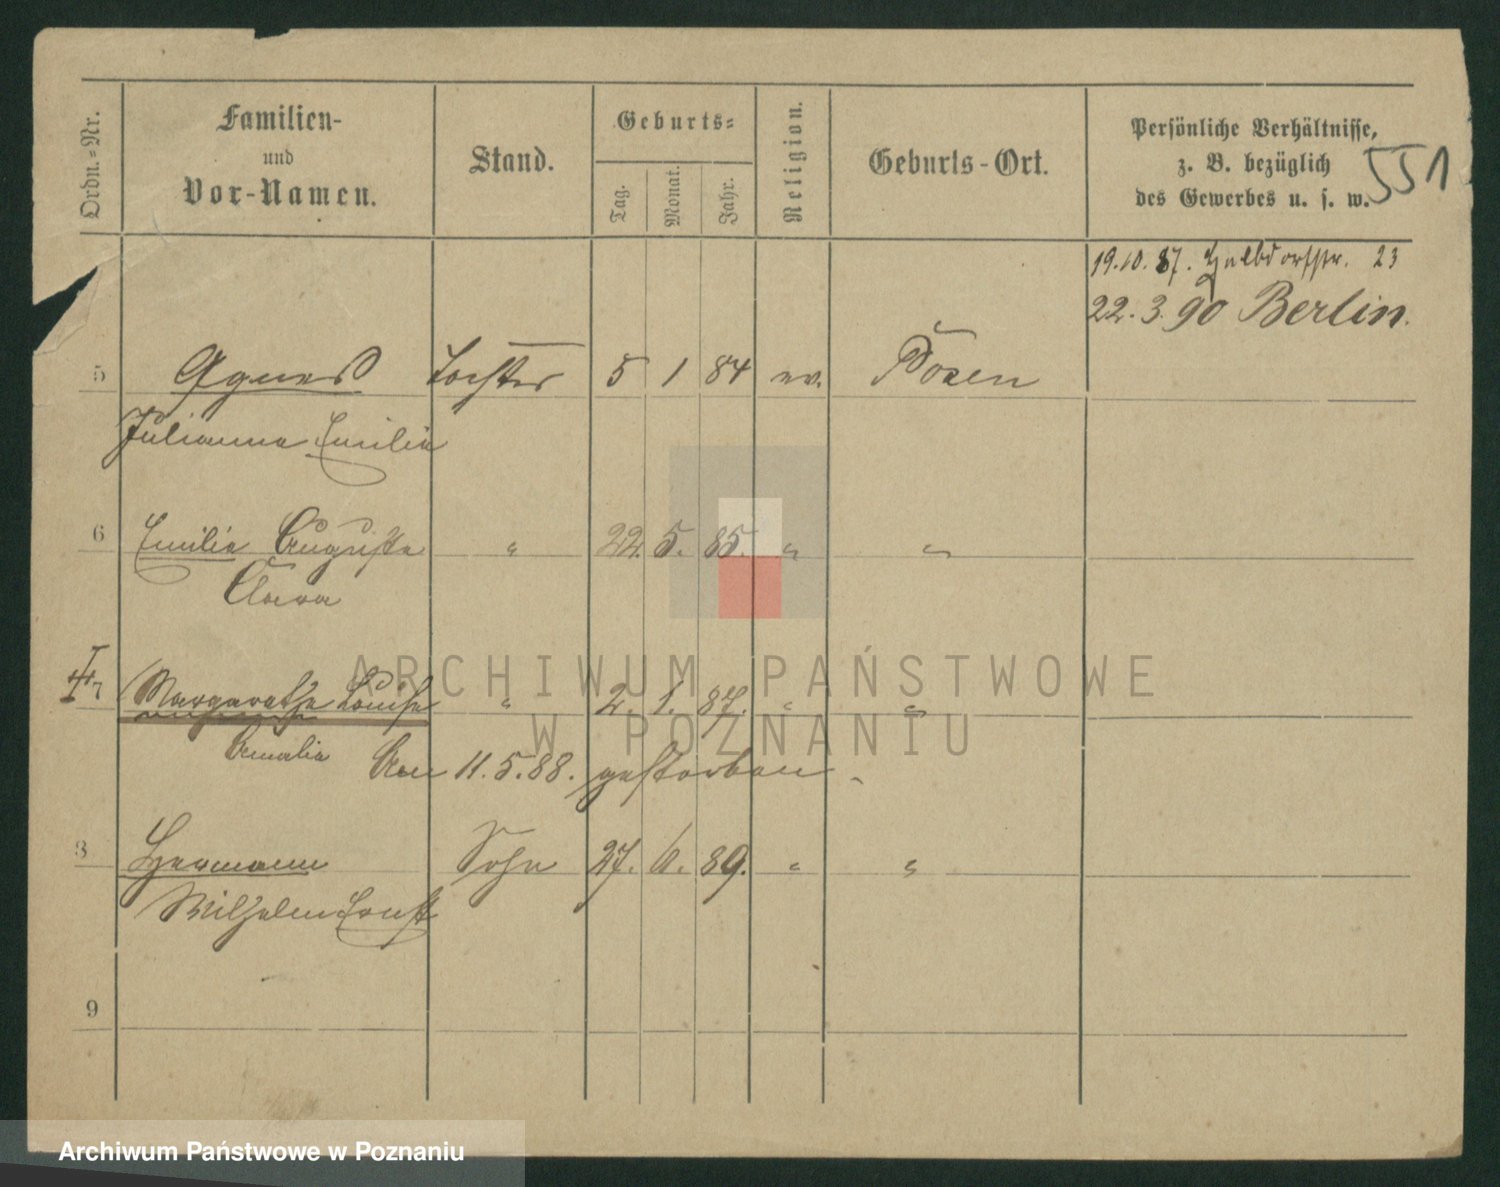 Ordn.-Nr.
Familien-
und
Vor-Namen.
Stand.
Geburts-
Tag.
Monat.
Jahr.
Religion.
Geburts-Ort.
Persönliche Verhältnisse,
z. B. bezüglich
des Gewerbes u. s. w.
551
19.10.87. Halbdorfstr. 23
22.3.90 Berlin.
5 Agnes Tochter 5 1 84 ev. Posen
Julianna Emilie
6 Emilie Auguste " 22. 5. 85. " "
Clara
7 Margarethe Louise " 2. 1. 87. " "
Amalie Am 11.5.88. gestorben.
8 Hermann Sohn 27. 89. " "
Wilhelm Ernst
9
ARCHIWUM PAŃSTWOWE
W POZNANIU
Archiwum Państwowe w Poznaniu